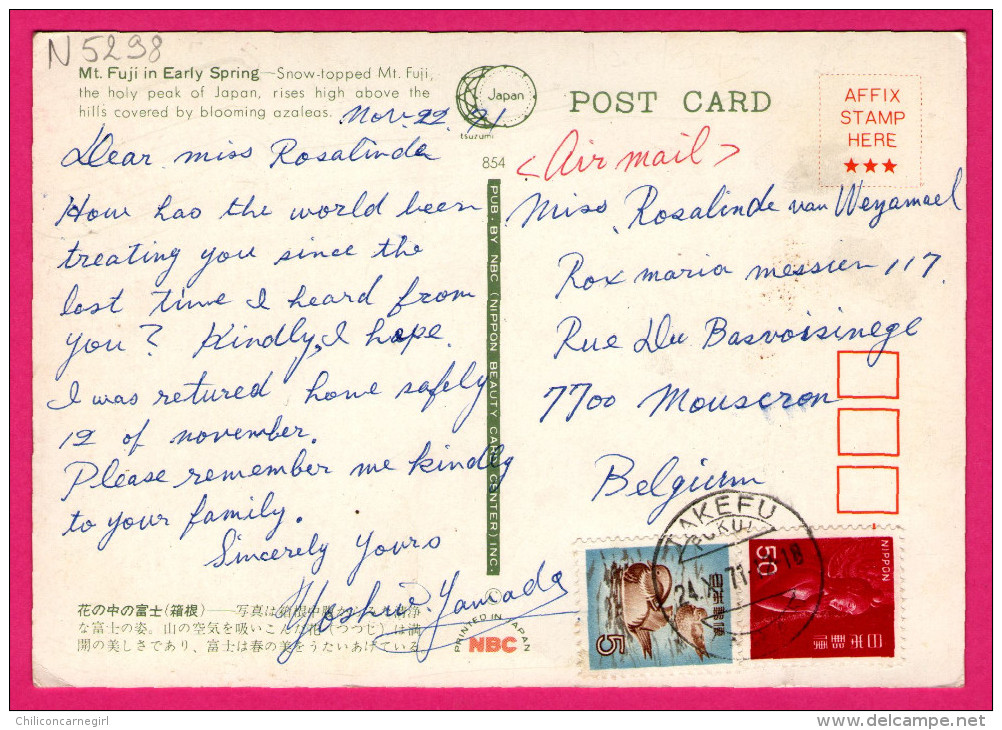 N 5298
Mt. Fuji in Early Spring—Snow-topped Mt. Fuji,
the holy peak of Japan, rises high above the
hills covered by blooming azaleas.
Japan
tsuzumi
POST CARD
AFFIX
STAMP
HERE
★★★
854
Nov. 22. 71
Dear miss Rosalinda
How has the world been
treating you since the
last time I heard from
you? Kindly, I hope.
I was retured home safely
12 of november.
Please remember me kindly
to your family.
Sincerely Yours
Yoshie. Yamada
PUB. BY NBC (NIPPON BEAUTY CARD CENTER) INC.
<Air mail>
Miss. Rosalinde van Weyamael
Rox maria messien 117
Rue Du Basvoisinege
7700 Mouscron
Belgium
TAKEFU
FUKUI
24. 71. 18
日本郵便
5
NIPPON
50
日本郵便
花の中の富士(箱根)——写真は箱根中腹からみる清浄
な富士の姿。山の空気を吸いこんだ花(つつじ)は満
開の美しさであり、富士は春の美をうたいあげている
©
PRINTED IN JAPAN
NBC
Chiliconcarnegirl
delcampe.net